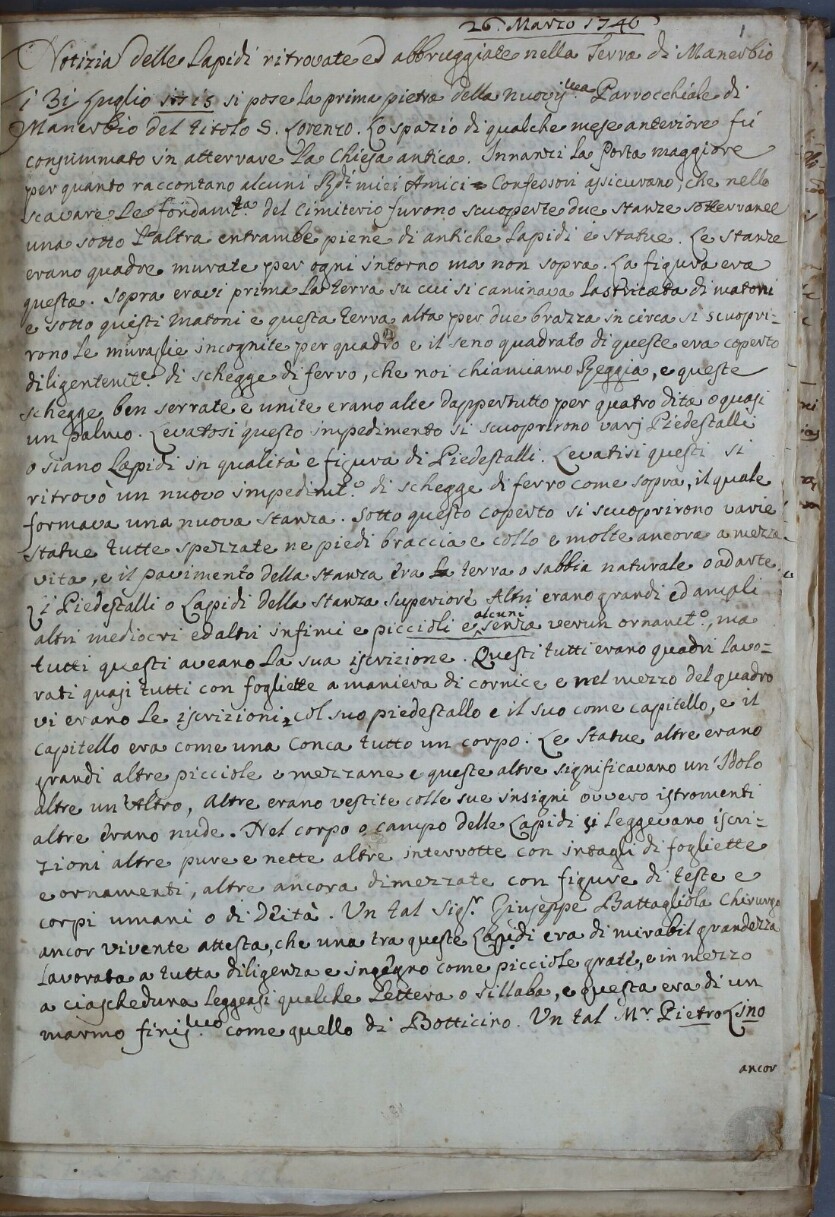 26. Marzo 1746
1
Notizia delle Lapidi ritrovate ed abbruggiate nella Terra di Manerbio
i 31 Luglio si pose la prima pietra della nuoviss.ma Parrocchiale di
Manerbio del titolo S. Lorenzo. Lo spazio di qualche mese anteriore fu
consummato in atterrare la Chiesa antica. Innanzi la Porta maggiore
per quanto raccontano alcuni Rdi miei Amici Confessori assicurano, che nello
scavare le fondamta del Cimiterio furono scuoperte due stanze sotterranee
una sotto l'altra entrambe piene di antiche Lapidi e statue. Le stanze
erano quadre murate per ogni intorno ma non sopra. La figura era
questa. Sopra eravi prima la terra su cui si caminava lastricata di matoni
e sotto questi matoni e questa terra alta per due brazza in circa si scuopri-
rono le muraglie incognite per quadro e il seno quadrato di queste era coperto
diligentemte di schegge di ferro, che noi chiamiamo Reggia, e queste
schegge ben serrate e unite erano alte dappertutto per quatro dita o quasi
un palmo. Levatosi questo impedimento si scuoprirono varj Piedestalli
o siano Lapidi in qualità e figura di Piedestalli. Levatisi questi si
ritrovò un nuovo impedimto di schegge di ferro come sopra, il quale
formava una nuova stanza. Sotto questo coperto si scuoprirono varie
statue tutte spezzate ne piedi braccia e collo e molte ancora a mezza
vita, e il pavimento della stanza era terra o sabbia naturale o ad arte.
Li Piedestalli o Lapidi della stanza superiore Altri erano grandi ed ampli
altri mediocri ed altri infimi e piccioli e alcuni senza verun ornamto, ma
tutti questi aveano la sua iscrizione. Questi tutti erano quadri lavo-
rati quasi tutti con fogliette a maniera di cornice e nel mezzo del quadro
vi erano le iscrizioni, col suo piedestallo e il suo come capitello, e il
capitello era come una Conca tutto un corpo. Le statue altre erano
grandi altre picciole e mezzane e queste altre significavano un Idolo
altre un Altro, Altre erano vestite colle sue insigni ovvero istromenti
altre erano nude. Nel corpo o campo delle Lapidi si leggevano iscri-
zioni altre pure e nette altre interrotte con intagli di fogliette
e ornamenti, altre ancora dimezzate con figure di teste e
corpi umani o di Deità. Un tal Sigr. Giuseppe Battagliola Chirurgo
ancor vivente attesta, che una tra queste Lapidi era di mirabil grandezza
lavorata a tutta diligenza e ingegno come picciole grate, e in mezzo
a ciascheduna leggeasi qualche Lettera o sillaba, e questa era di un
marmo finissimo come quello di Botticino. Un tal Mr. Pietro Lino
ancor